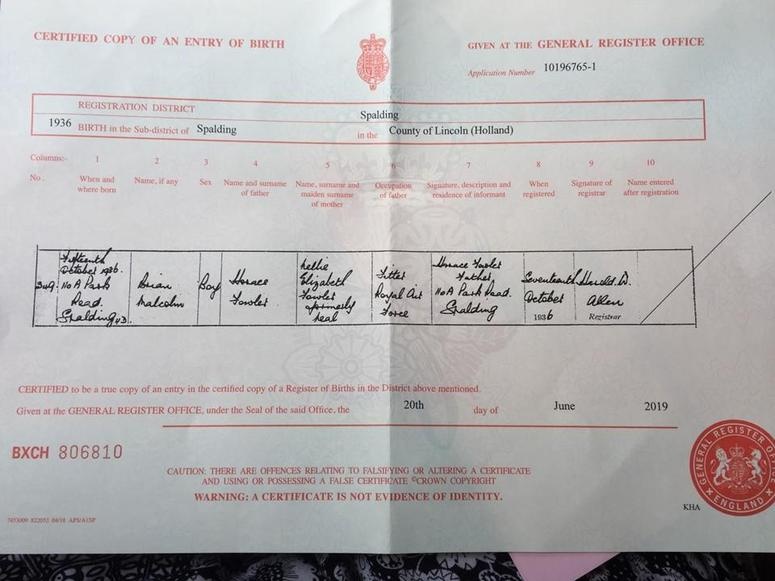 CERTIFIED COPY OF AN ENTRY OF BIRTH
GIVEN AT THE GENERAL REGISTER OFFICE
Application Number 10196765-1
REGISTRATION DISTRICT Spalding
1936 BIRTH in the Sub-district of Spalding in the County of Lincoln (Holland)
Columns:- 1 2 3 4 5 6 7 8 9 10
No. When and where born Name, if any Sex Name and surname of father Name, surname and maiden surname of mother Occupation of father Signature, description and residence of informant When registered Signature of registrar Name entered after registration
Fifteenth Nellie Horace Fowler
October 1936 Brian Boy Horace Elizabeth Fitter Father Seventeenth Harold W.
Park Malcolm Fowler Fowler Royal Air Park Road October Allen
Road formerly Force Spalding 1936 Registrar
Spalding Neal
CERTIFIED to be a true copy of an entry in the certified copy of a Register of Births in the District above mentioned.
Given at the GENERAL REGISTER OFFICE, under the Seal of the said Office, the 20th day of June 2019
BXCH 806810
CAUTION: THERE ARE OFFENCES RELATING TO FALSIFYING OR ALTERING A CERTIFICATE
AND USING OR POSSESSING A FALSE CERTIFICATE ©CROWN COPYRIGHT
WARNING: A CERTIFICATE IS NOT EVIDENCE OF IDENTITY.
GENERAL REGISTER OFFICE
ENGLAND
KHA